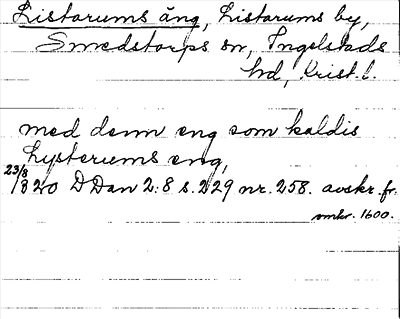 Listarums äng, Listarums by,
Smedstorps sn, Ingelstads
hd, Krist. l.
med denn eng som kaldis
Lysteriums eng,
23/8 1320 DDan 2:8 s. 229 nr. 258. avskr. fr.
omkr. 1600.